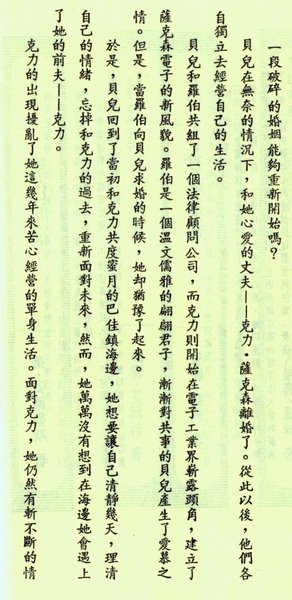 一段破碎的婚姻能夠重新開始嗎？
貝兒在無奈的情況下，和她心愛的丈夫——克力·薩克森離婚了。從此以後，他們各
自獨立去經營自己的生活。
貝兒和羅伯共組了一個法律顧問公司，而克力則開始在電子工業界嶄露頭角，建立了
薩克森電子的新風貌。羅伯是一個溫文儒雅的翩翩君子，漸漸對共事的貝兒產生了愛慕之
情。但是，當羅伯向貝兒求婚的時候，她却猶豫了起來。
於是，貝兒回到了當初和克力共度蜜月的巴佳鎮海邊，她想要讓自己清靜幾天，理清
自己的情緒，忘掉和克力的過去，重新面對未來，然而，她萬萬沒有想到在海邊她會遇上
了她的前夫——克力。
克力的出現擾亂了她這幾年來苦心經營的單身生活。面對克力，她仍然有斬不斷的情